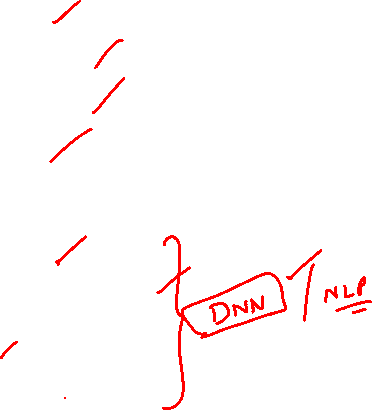 DNN
NLP